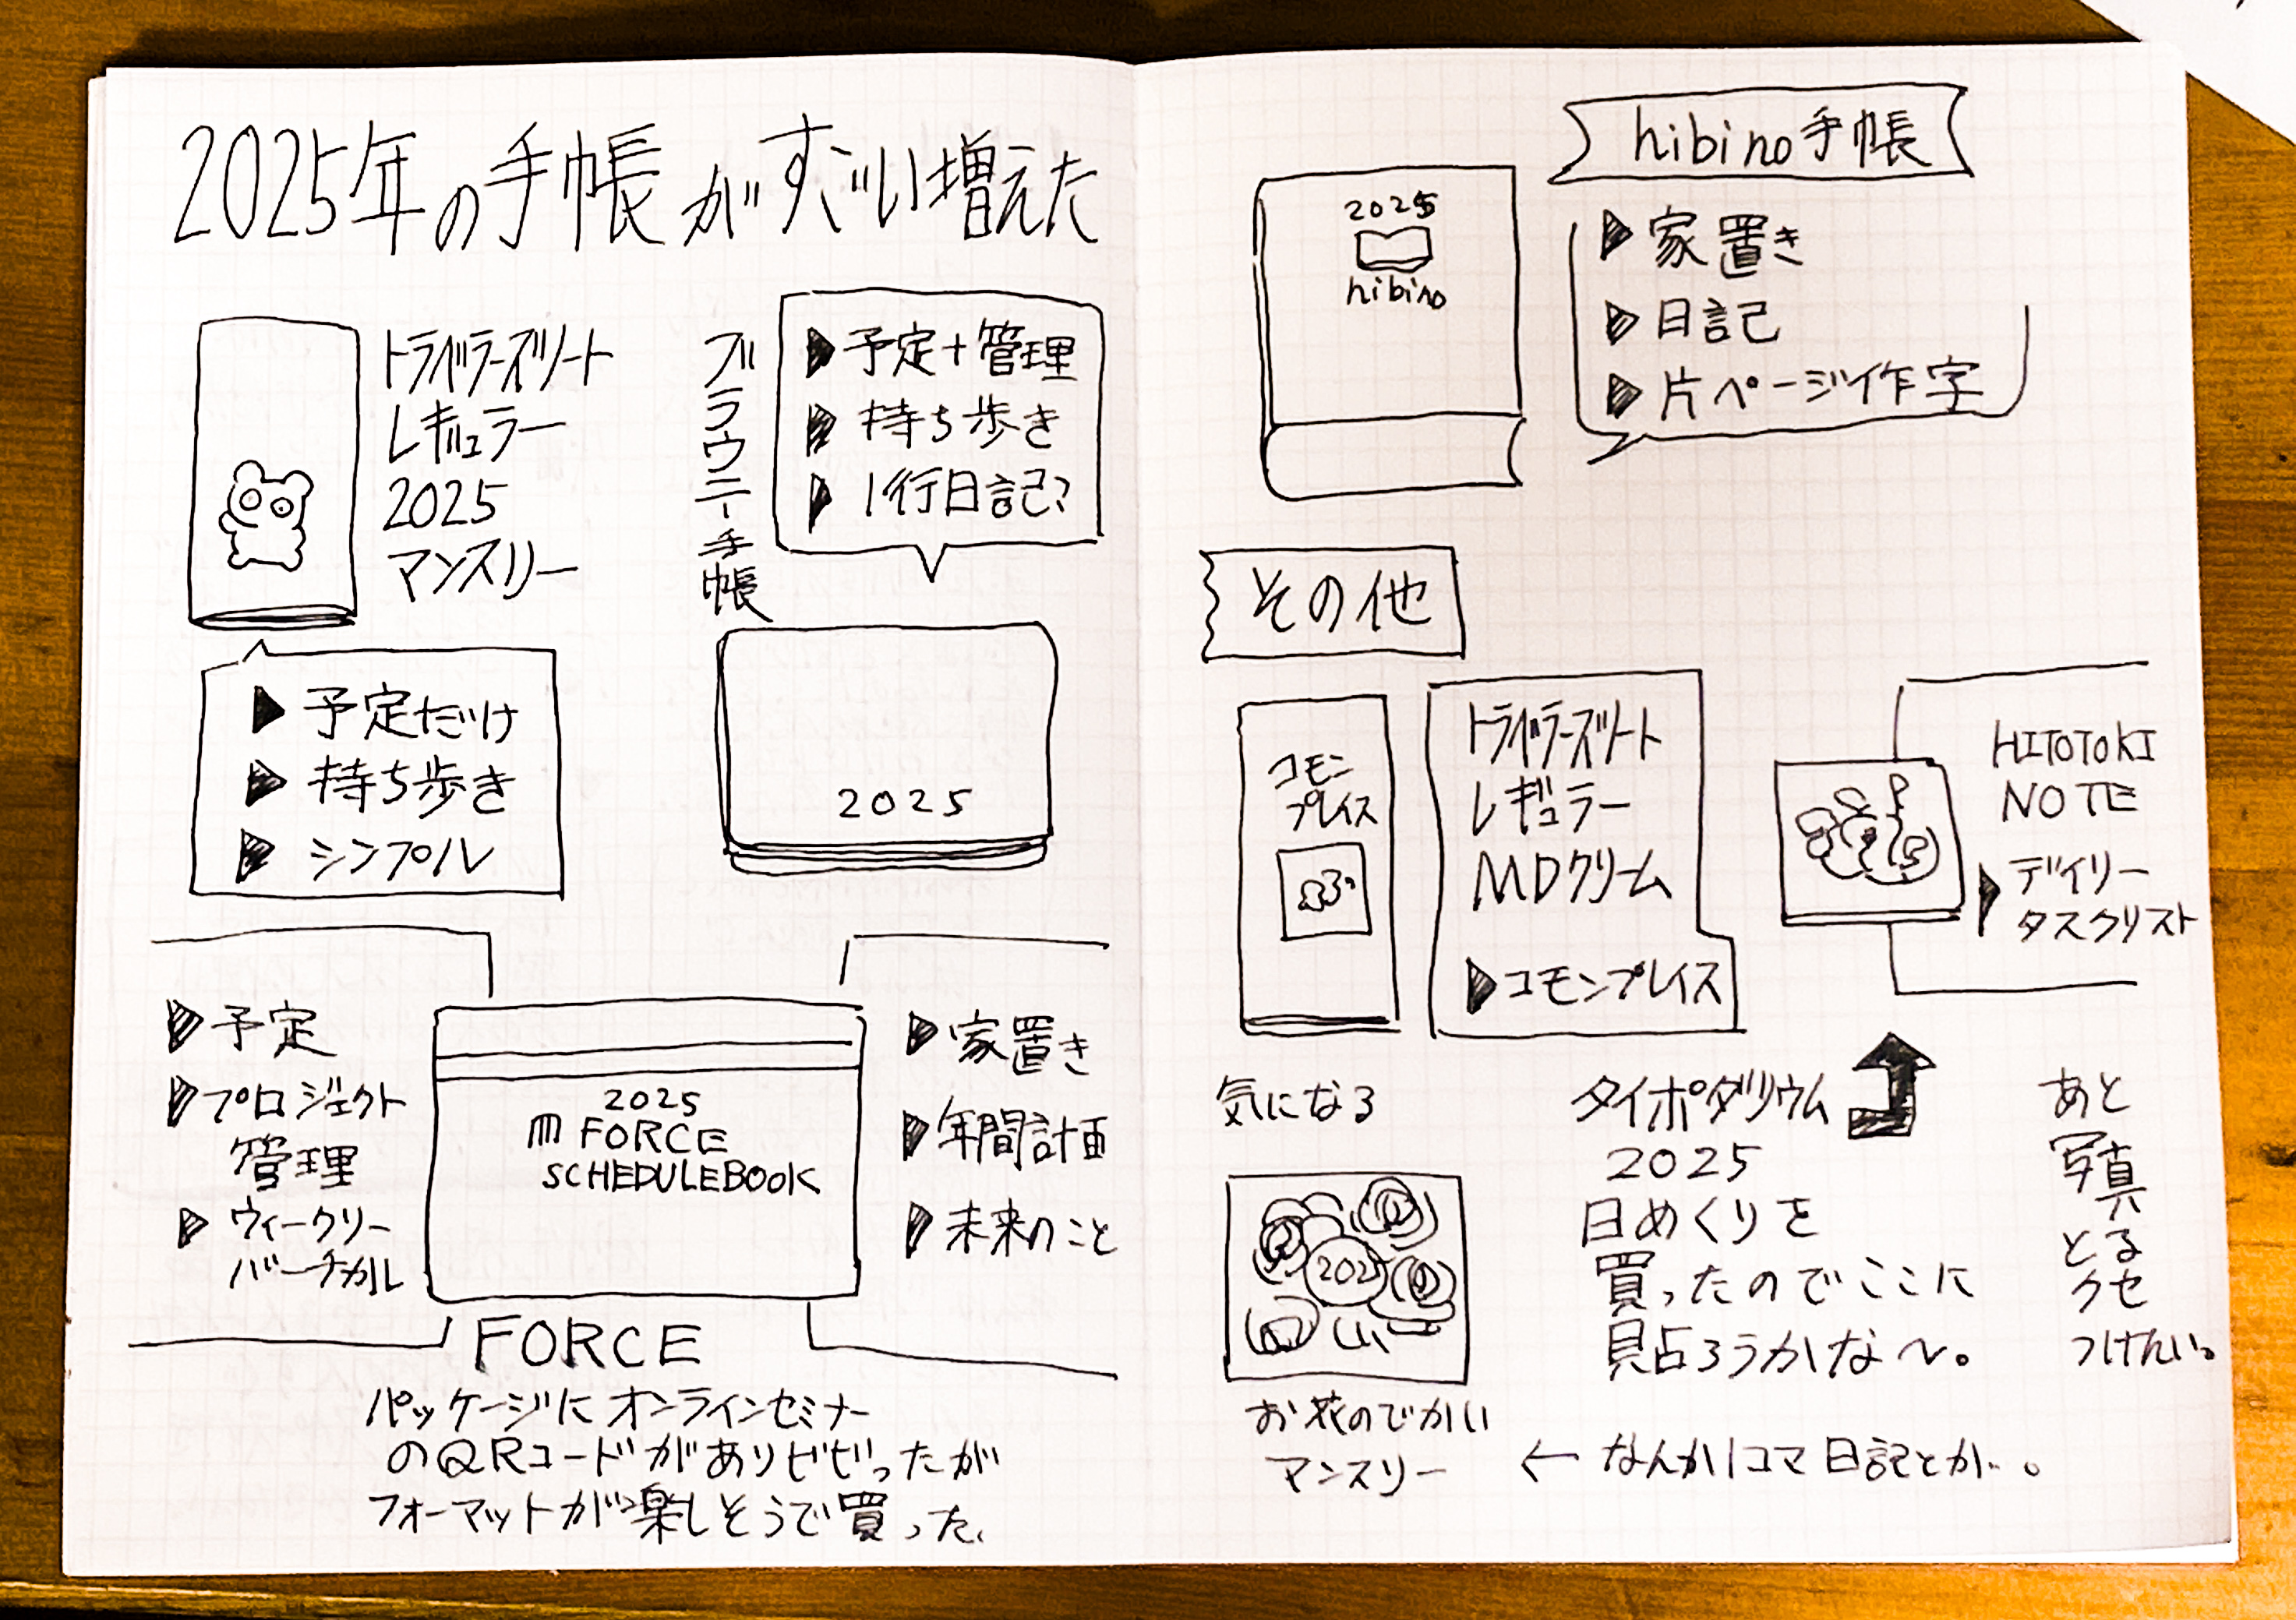 2025年の手帳がすごい増えた
トラベラーズノート
レギュラー
2025
マンスリー
▶予定だけ
▶持ち歩き
▶シンプル
ブラウニー手帳
▶予定+管理
▶持ち歩き
▶1行日記?
2025
▶予定
▶プロジェクト
管理
▶ウィークリー
バーチカル
2025
FORCE
SCHEDULEBOOK
▶家置き
▶年間計画
▶未来のこと
FORCE
パッケージにオンラインセミナー
のQRコードがありビビったが
フォーマットが楽しそうで買った。
hibino手帳
2025
hibino
▶家置き
▶日記
▶片ページ作字
その他
コモン
プレイス
トラベラーズノート
レギュラー
MDクリーム
▶コモンプレイス
HITOTOKI
NOTE
▶デイリー
タスクリスト
気になる
2025
お花のでかい
マンスリー
← なんか1コマ日記とか…。
タイポダリウム
2025
日めくりを
買ったのでここに
貼ろうかな〜。
あと
写真
とる
クセ
つけたい。